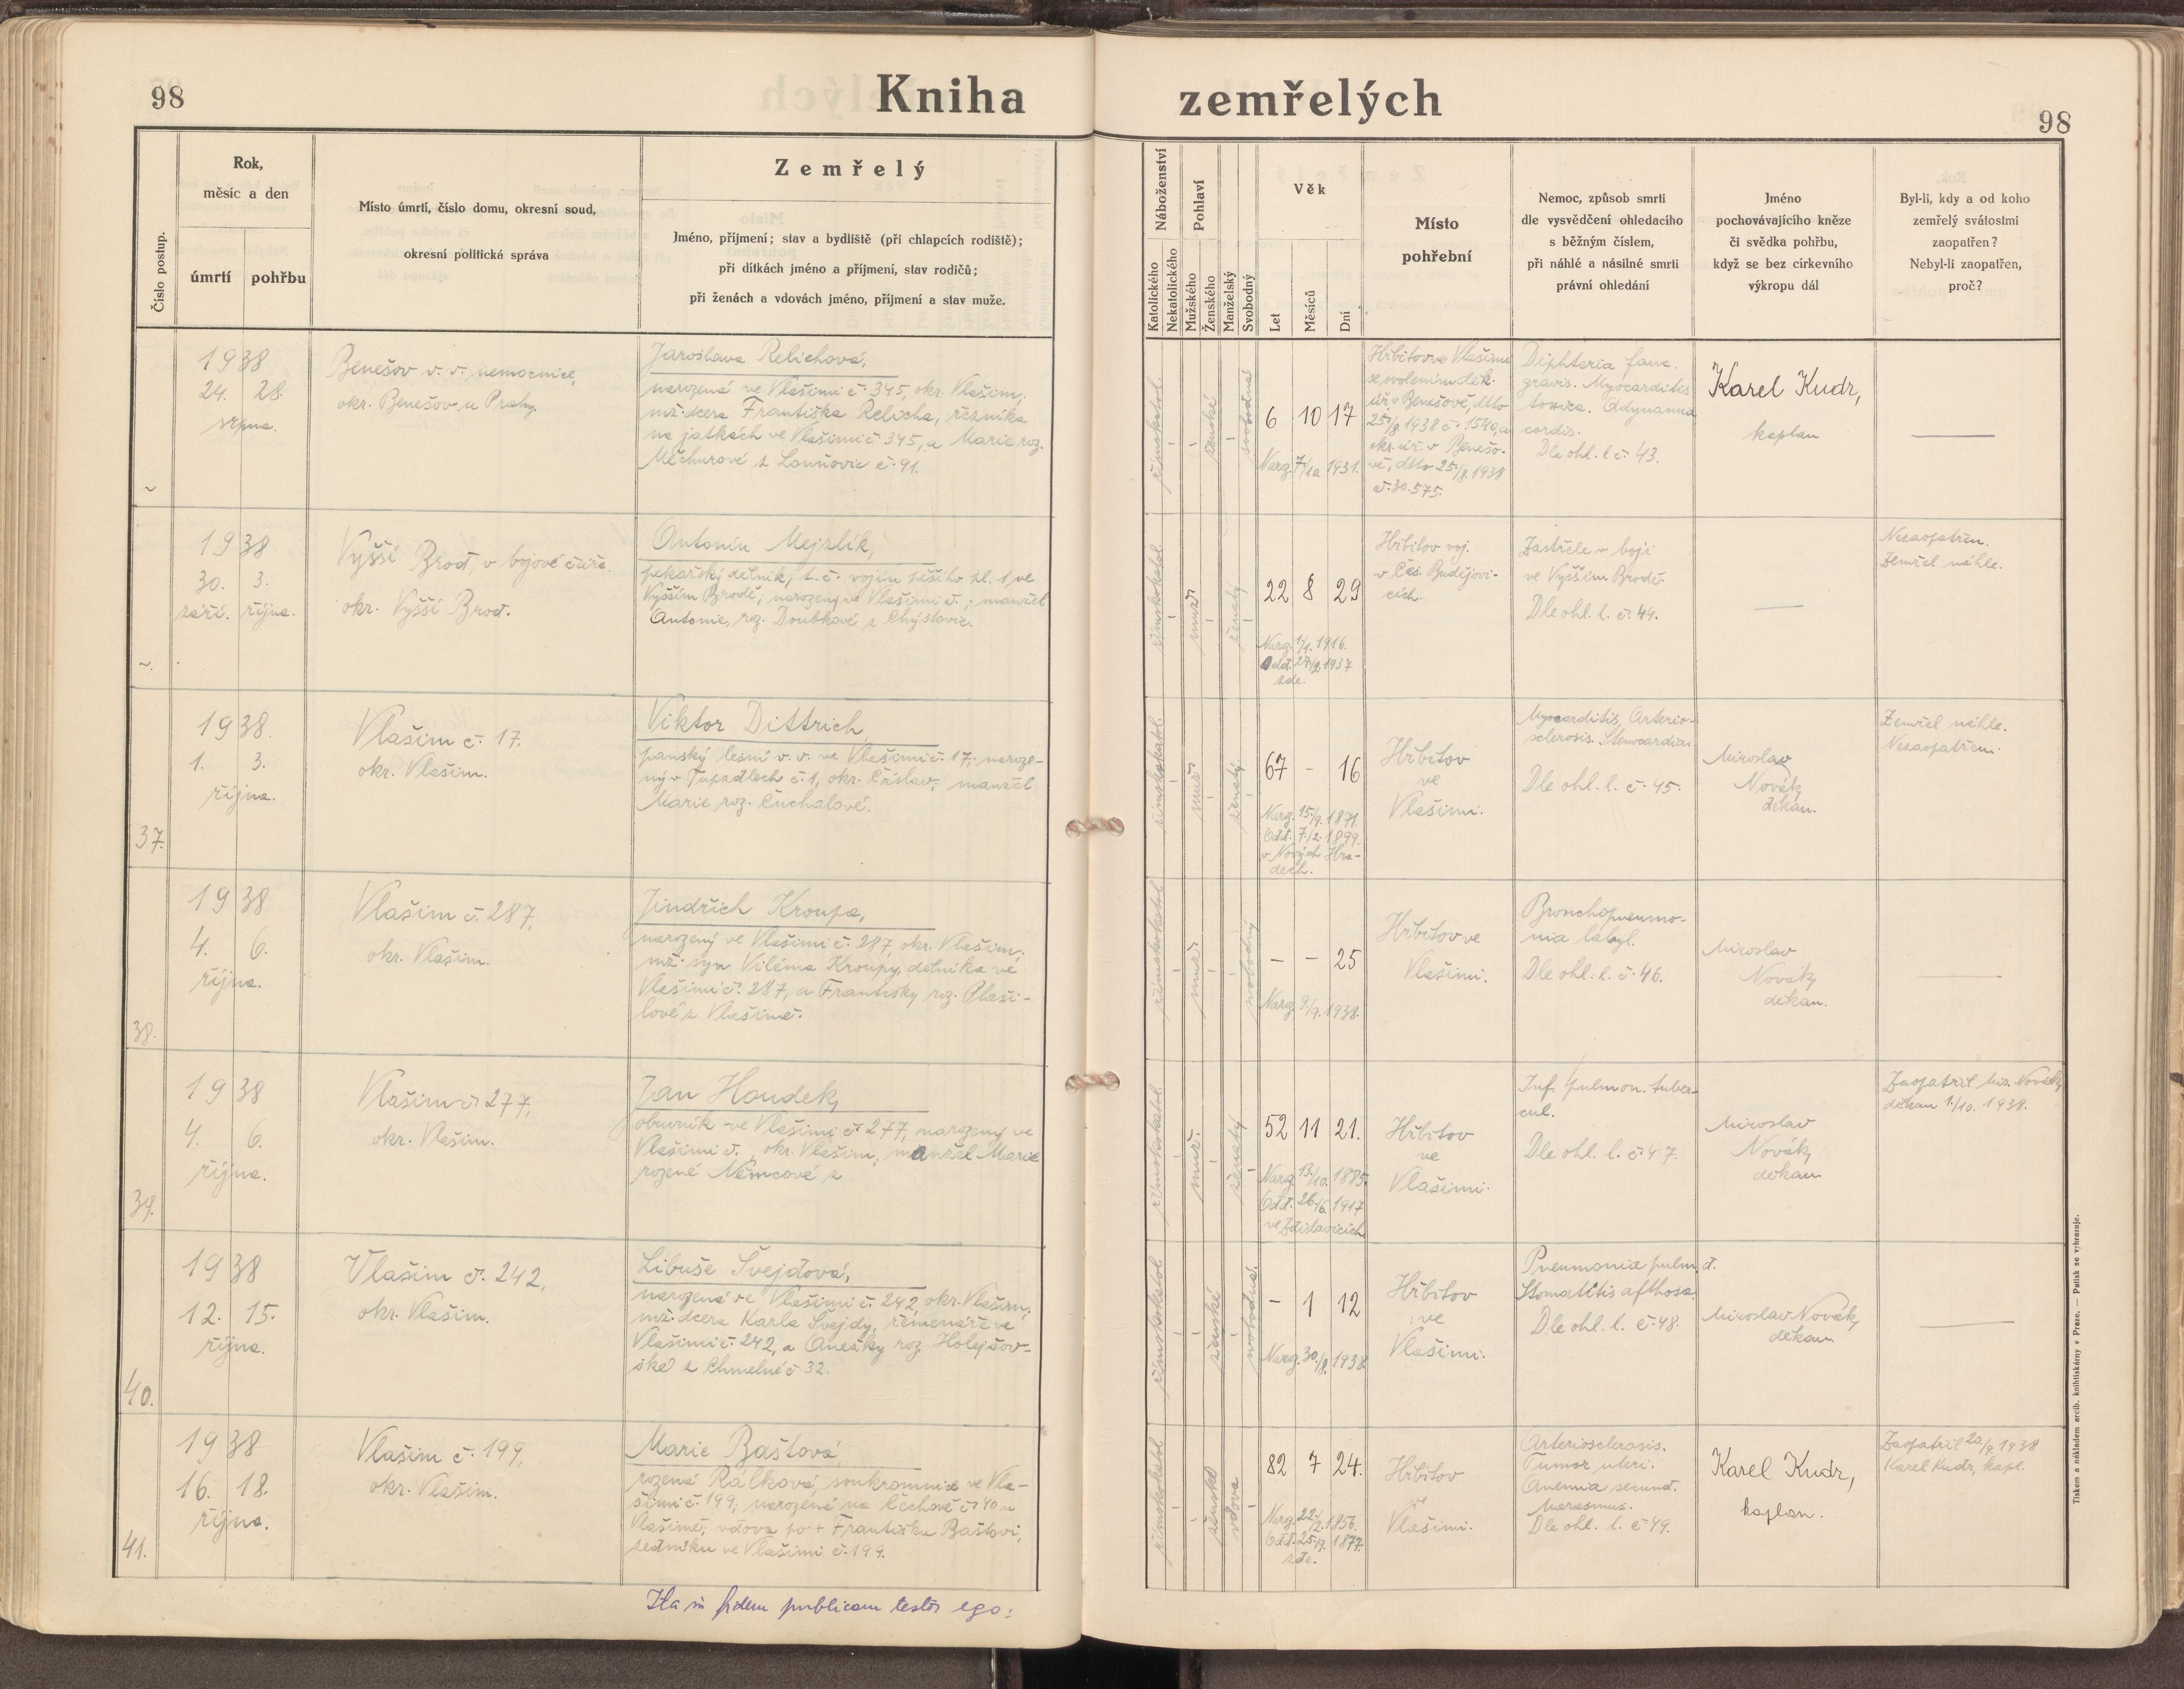 98
Kniha
zemřelých
98
Číslo postup.
Rok,
měsíc a den
úmrtí
pohřbu
Místo úmrtí, číslo domu, okresní soud,
okresní politická správa
Zemřelý
Jméno, příjmení; stav a bydliště (při chlapcích rodiště);
při dítkách jméno a příjmení, stav rodičů;
při ženách a vdovách jméno, příjmení a stav muže.
Náboženství
Katolického
Nekatolického
Pohlaví
Mužského
Ženského
Manželský
Svobodný
Věk
Let
Měsíců
Dní
Místo
pohřební
Nemoc, způsob smrti
dle vysvědčení ohledacího
s běžným číslem,
při náhlé a násilné smrti
právní ohledání
Jméno
pochovávajícího kněze
či svědka pohřbu,
když se bez církevního
výkropu dál
Byl-li, kdy a od koho
zemřelý svátostmi
zaopatřen?
Nebyl-li zaopatřen,
proč?
1938
24. 28.
srpna.
Benešov v. v. nemocnice,
okr. Benešov u Prahy.
Jaroslava Relichová,
narozená ve Vlašimi č. 345, okr. Vlašim;
mž. dcera Františka Relicha, řezníka
na jatkách ve Vlašimi č. 345, a Marie roz.
Měchurové z Louňovic č. 91.
římskokatol.
ženské
svobodná
6 10 17
Naroz. 7./10. 1931.
Hřbitov ve Vlašimi
se svolením děk.
úř. v Benešově, dtto
25./8. 1938 č. 1540, a
okr. úř. v Benešo-
vě, dtto 25./8. 1938
č. 30.575.
Diphteria fauc.
gravis. Myocarditis
toxica. Adynamia
cordis.
Dle ohl. l. č. 43.
Karel Kudr,
kaplan
1938
30. 3.
září. října.
Vyšší Brod, v bojové čáře.
okr. Vyšší Brod.
Antonín Mejzlík,
pekařský dělník, t. č. vojín pěšího pl. 1, ve
Vyšším Brodě; narozený ve Vlašimi č. ; manžel
Antonie, roz. Doubkové z Chýstovic.
římskokatol.
muž.
ženatý
22 8 29
Naroz. 1./1. 1916.
Odd. 27./2. 1937
zde.
Hřbitov voj.
v Čes. Budějovi-
cích.
Zastřelen v boji
ve Vyšším Brodě.
Dle ohl. l. č. 44.
Nezaopatřen.
Zemřel náhle.
37.
1938.
1. 3.
října.
Vlašim č. 17.
okr. Vlašim.
Viktor Dittrich,
panský lesní v. v. ve Vlašimi č. 17; naroze-
ný v Tupadlech č. 1, okr. Čáslav; manžel
Marie roz. Čuchalové.
římskokatol.
muž.
ženatý
67 - 16
Naroz. 15./9. 1871.
Odd. 7./2. 1899.
v Nových Hra-
dech.
Hřbitov
ve
Vlašimi.
Myocarditis, Arterio-
sclerosis. Stenocardia
Dle ohl. l. č. 45.
Miroslav
Novák,
děkan.
Zemřel náhle.
Nezaopatřen.
38.
1938
4. 6.
října.
Vlašim č. 287,
okr. Vlašim.
Jindřich Kroupa,
narozený ve Vlašimi č. 287, okr. Vlašim;
mž. syn Viléma Kroupy, dělníka ve
Vlašimi č. 287, a Františky roz. Plaši-
lové z Vlašimě.
římskokatol.
muž.
svobodný
- - 25
Naroz. 9./9. 1938.
Hřbitov ve
Vlašimi.
Bronchopneumo-
nia
Dle ohl. l. č. 46.
Miroslav
Novák,
děkan.
39.
1938
4. 6.
října.
Vlašim č. 277,
okr. Vlašim.
Jan Houdek,
obuvník ve Vlašimi č. 277, narozený ve
Vlašimi č. , okr. Vlašim; manžel Marie
rozené Němcové z
římskokatol.
muž.
ženatý
52 11 21.
Naroz. 13./10. 1885.
Odd. 26./6. 1917
ve Zdislavicích
Hřbitov
ve
Vlašimi.
Inf. pulmon. tuber-
cul.
Dle ohl. l. č. 47.
Miroslav
Novák,
děkan
Zaopatřil Mir. Novák,
děkan 1./10. 1938.
40.
1938
12. 15.
října.
Vlašim č. 242,
okr. Vlašim.
Libuše Švejdová,
narozená ve Vlašimi č. 242, okr. Vlašim;
mž. dcera Karla Švejdy, řemenáře ve
Vlašimi č. 242, a Anežky roz. Holejšov-
ské z Chmelné č. 32.
římskokatol.
ženské
svobodná.
- 1 12
Naroz. 30./8. 1938.
Hřbitov
ve
Vlašimi.
Pneumonia pulm. d.
Stomatitis afthosa.
Dle ohl. l. č. 48.
Miroslav Novák,
děkan
41.
1938
16. 18.
října.
Vlašim č. 199,
okr. Vlašim.
Marie Baštová,
rozená Rálková, soukromnice ve Vla-
šimi č. 199; narozená na Čechově č. 40 u
Vlašimě; vdova po + Františku Baštovi,
sedníku ve Vlašimi č. 199.
římskokatol.
ženské
vdova
82 7 24.
Naroz. 22./2. 1856.
Odd. 25./9. 1877.
zde.
Hřbitov
ve
Vlašimi.
Arteriosclerosis.
Tumor uteri.
Anemia secund.
Marasmus.
Dle ohl. l. č. 49.
Karel Kudr,
kaplan.
Zaopatřil 20/9. 1938
Karel Kudr, kapl.
Ita in fidem publicam testor ego:
Tiskem a nákladem arcib. knihtiskárny v Praze. — Patisk se vyhrazuje.